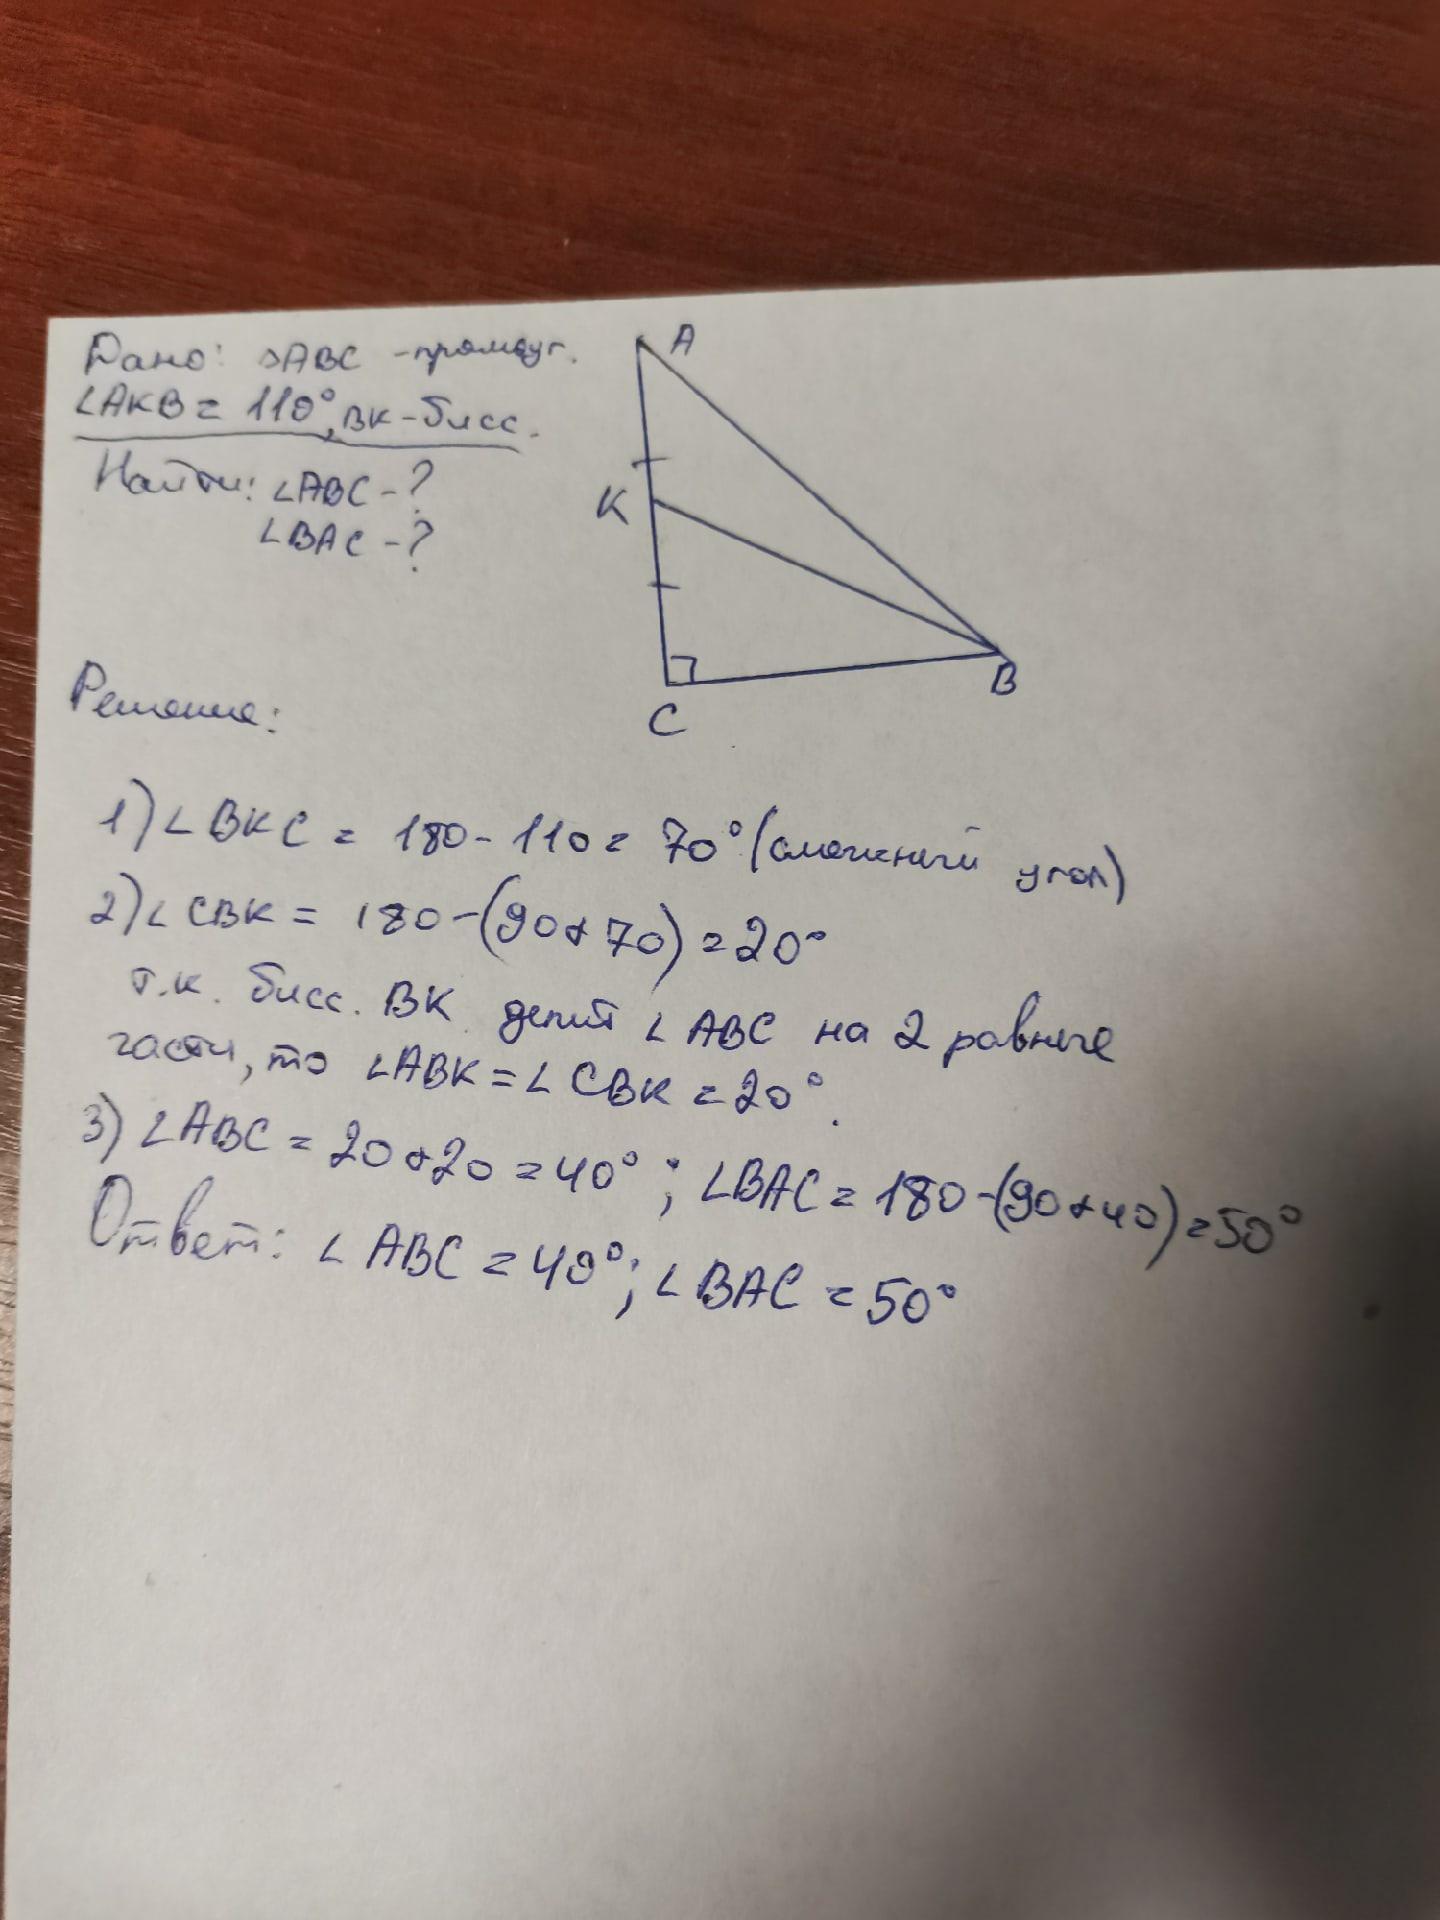 Дано: △ABC - прямоуг.
∠AKB = 110°, BK - бисс.
Найти: ∠ABC - ?
∠BAC - ?
A
K
C
B
Решение:
1) ∠BKC = 180 - 110 = 70° (смежный угол)
2) ∠CBK = 180 - (90 + 70) = 20°
т.к. бисс. BK делит ∠ABC на 2 равные
части, то ∠ABK = ∠CBK = 20°.
3) ∠ABC = 20 + 20 = 40°; ∠BAC = 180 - (90 + 40) = 50°
Ответ: ∠ABC = 40°; ∠BAC = 50°